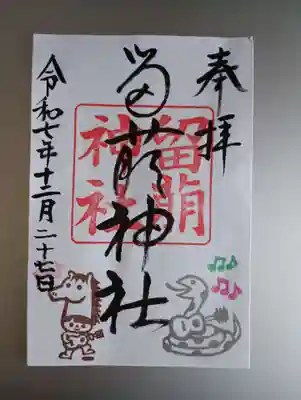 奉拝
留萌神社
留萌
神社
令和七年十二月二十七日